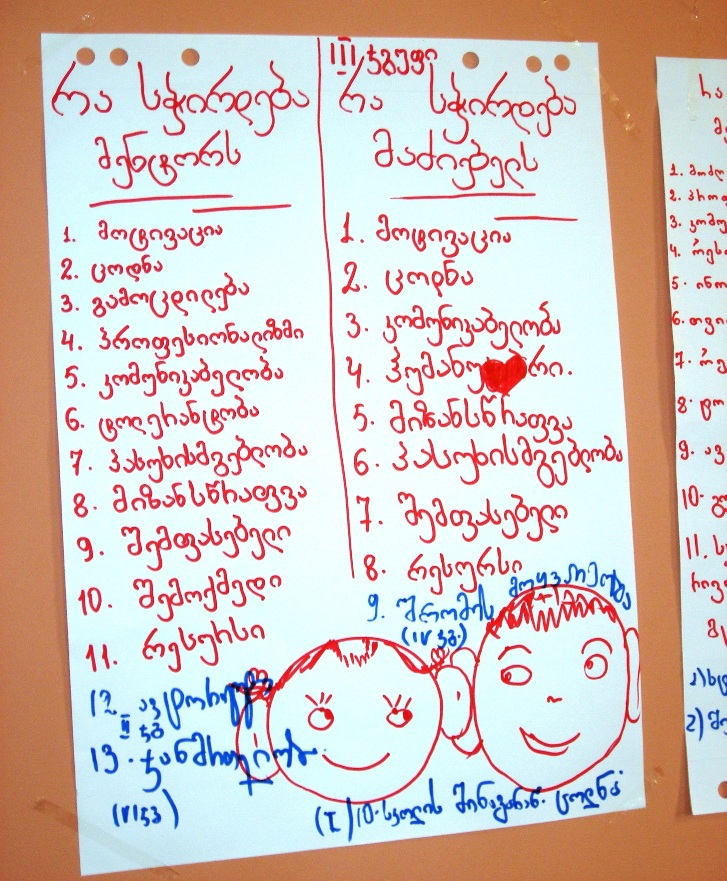 III ჯგუფი
რა სჭირდება
მენტორს
1. მოტივაცია
2. ცოდნა
3. გამოცდილება
4. პროფესიონალიზმი
5. კომუნიკაბელობა
6. ტოლერანტობა
7. პასუხისმგებლობა
8. მიზანსწრაფვა
9. შემფასებელი
10. შემოქმედი
11. რესურსი
12.
II ჯგ
13. ჯანმრთელობა
(VI ჯგ)
რა სჭირდება
მაძიებელს
1. მოტივაცია
2. ცოდნა
3. კომუნიკაბელობა
4. ჰუმანუ რი.
5. მიზანსწრაფვა
6. პასუხისმგებლობა
7. შემფასებელი
8. რესურსი
9. შრომის მოყვარეობა
(IV ჯგ.)
(I) 10. სკოლის შინაგანაწ. ცოდნა
რა
1.
2. პროფ
3. კომუ
4. რეს
5. ინო
6. თვი
7.
8.
9. ავ
10.
11.
1)
2)